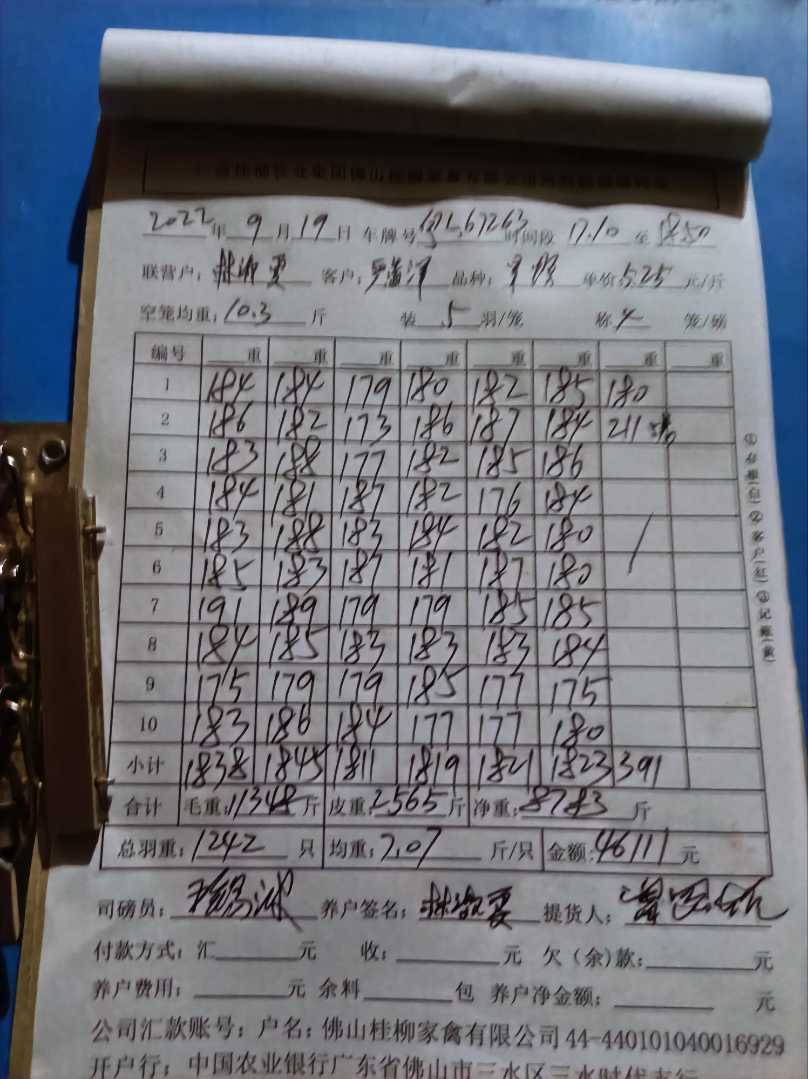 2022年9月19日 车牌号 67263 时间段 17.10 至 18.50
联营户: 林 客户: 品种: 单价5.25元/斤
空笼均重: 10.3 斤 装 5 羽/笼 称 4 笼/磅
编号 重 重 重 重 重 重 重 重
1 184 184 179 180 182 185 180
2 186 182 173 186 187 184 211
3 183 188 177 182 185 186
4 184 181 187 182 176 184
5 183 188 183 184 182 180
6 185 183 187 181 187 180
7 191 189 179 179 185 185
8 184 185 183 183 183 184
9 175 179 179 185 177 175
10 183 186 184 177 177 180
小计 1838 1845 1811 1819 1821 1823 391
合计 毛重: 11348 斤 皮重: 2565 斤 净重: 8783 斤
总羽重: 1242 只 均重: 7.07 斤/只 金额: 46111 元
司磅员: 养户签名: 林 提货人:
付款方式: 汇 元 收: 元 欠(余)款: 元
养户费用: 元 余料 包 养户净金额: 元
公司汇款账号: 户名: 佛山桂柳家禽有限公司 44-440101040016929
开户行: 中国农业银行广东省佛山市三水区三水时代支行
①存根(白) ②客户(红) ③记账(黄)